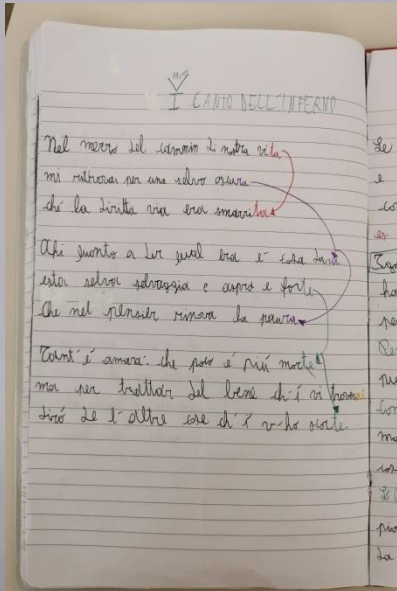 I CANTO DELL'INFERNO
Nel mezzo del cammin di nostra vita
mi ritrovai per una selva oscura
ché la diritta via era smarrita
Ahi quanto a dir qual era è cosa dura
esta selva selvaggia e aspra e forte
che nel pensier rinova la paura
Tant'è amara che poco è più morte
ma per trattar del bene ch'i vi trovai
dirò de l'altre cose ch'i v'ho scorte